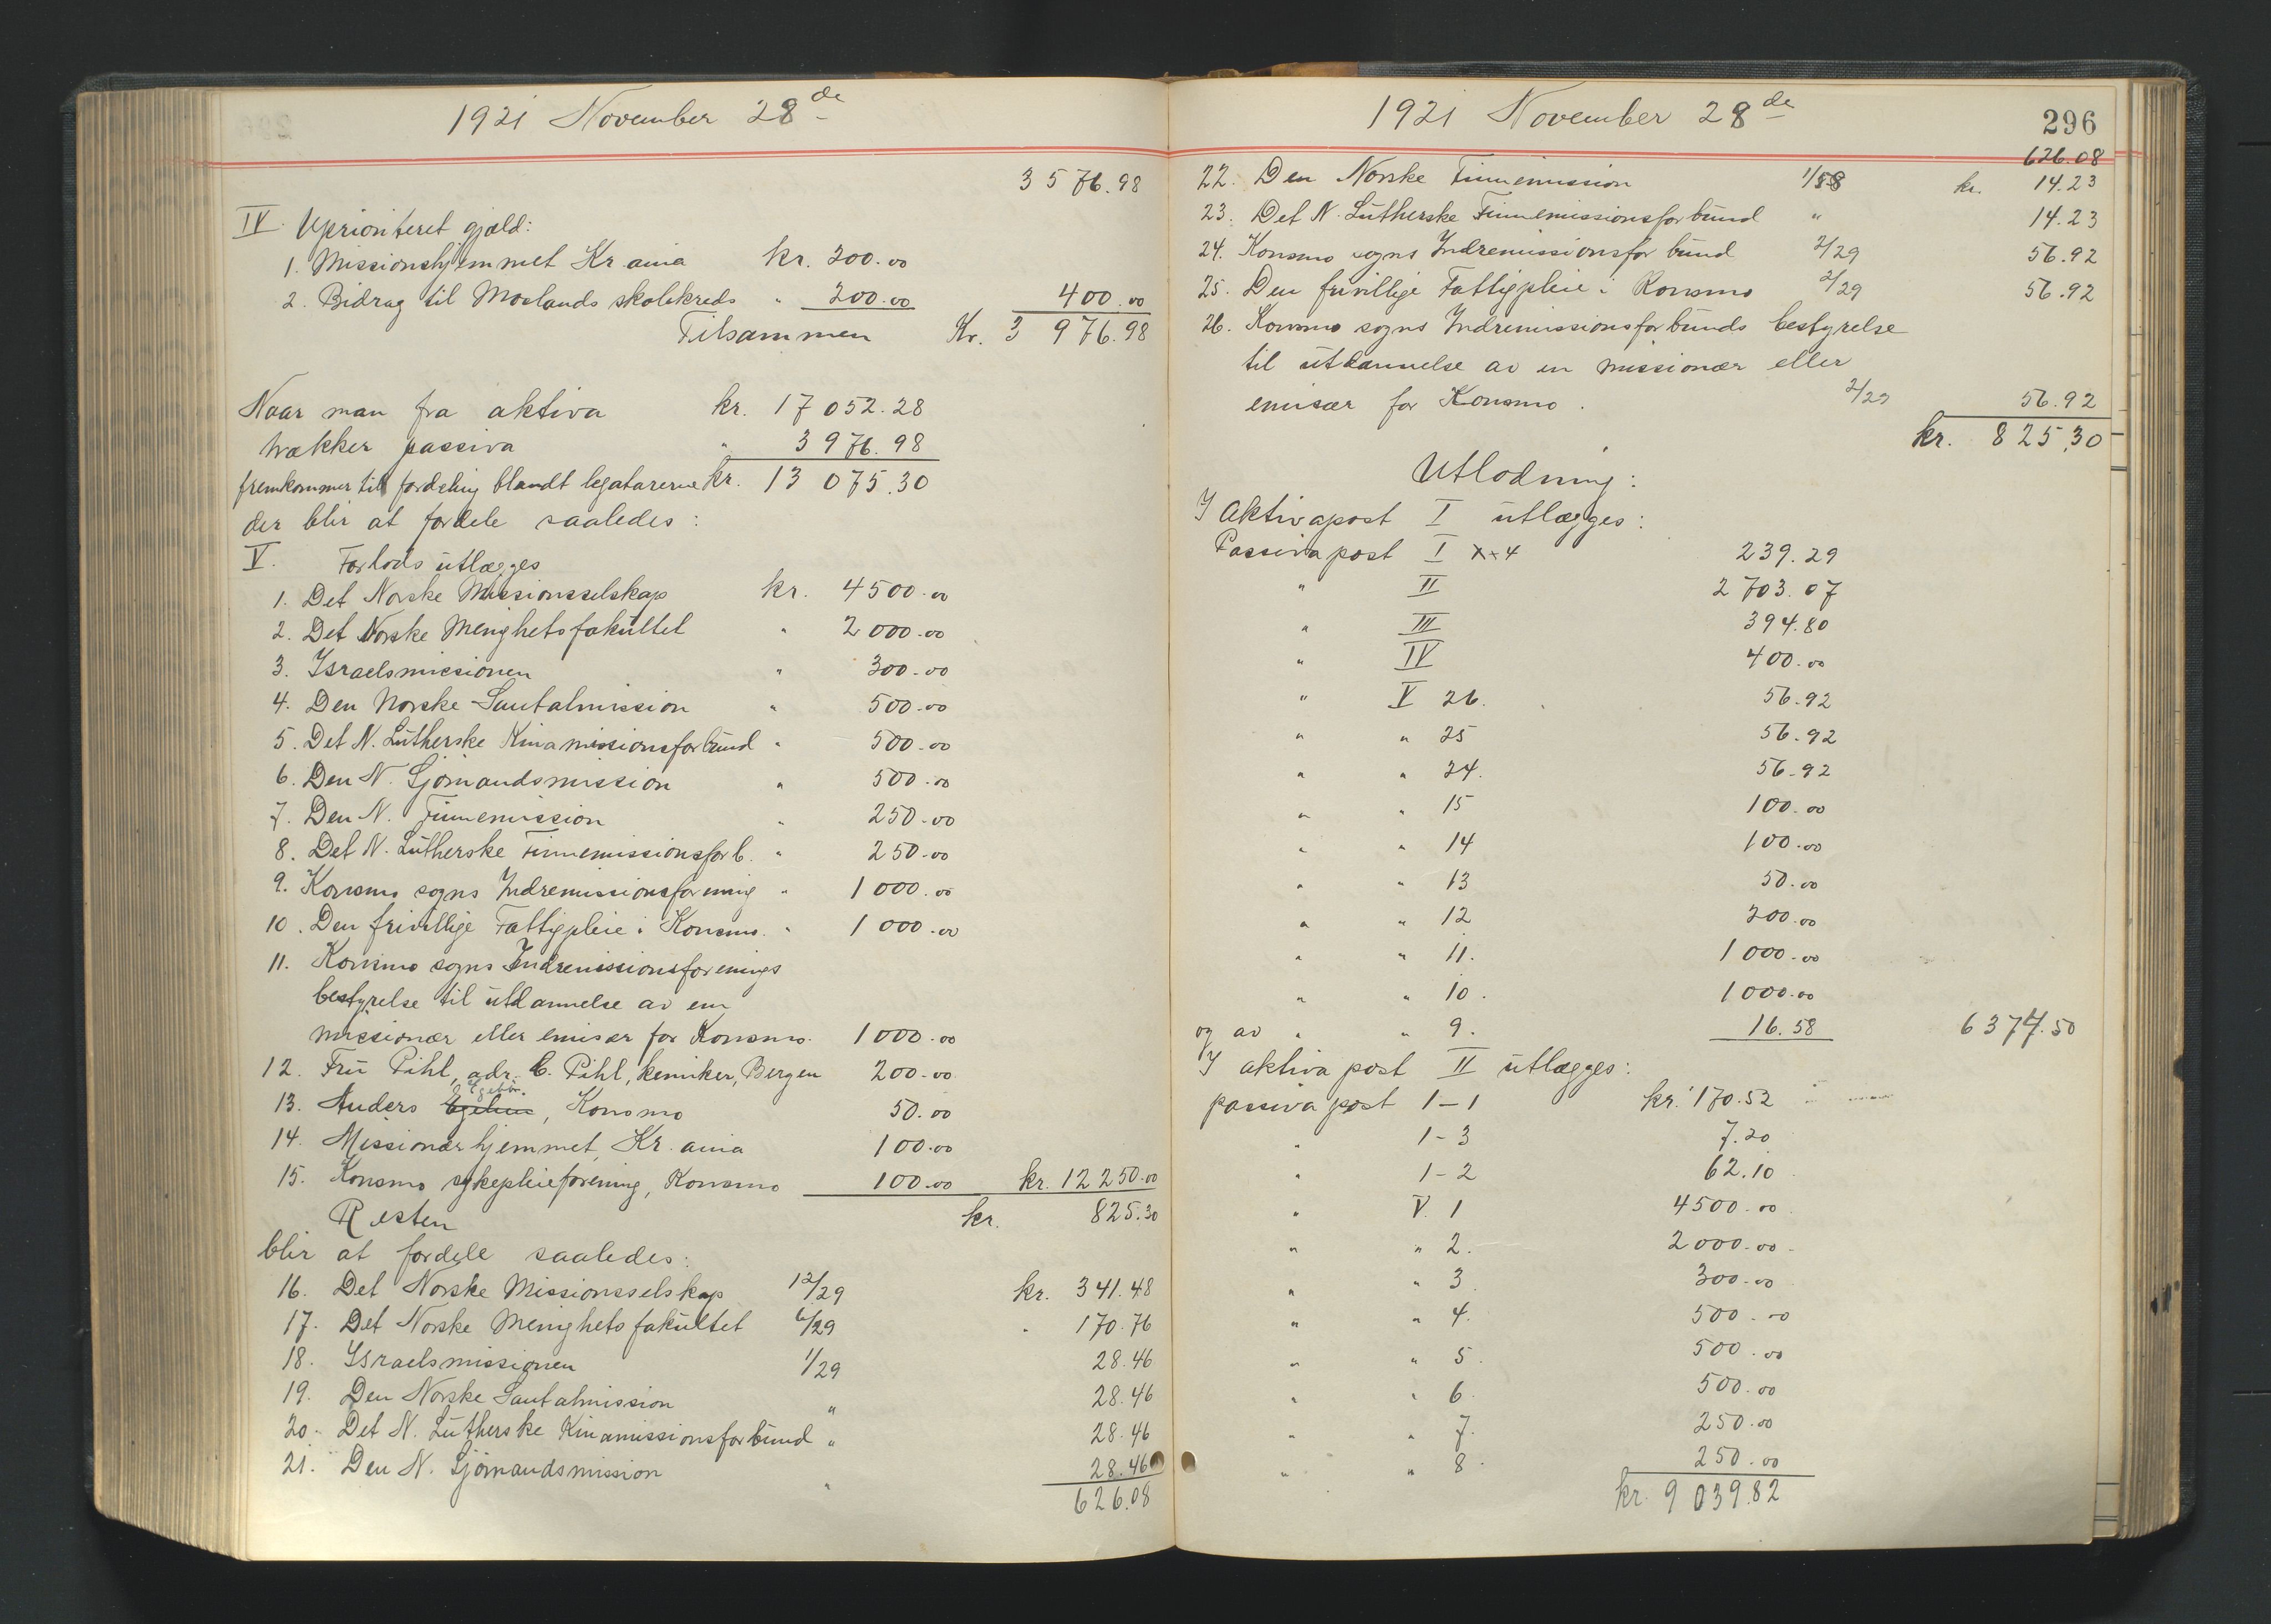 1921 November 28de
3576.98
IV. Uprioriteret gjæld:
1. Missionshjemmet Kr ania kr. 200.00
2. Bidrag til Moslands skolekreds " 200.00 400.00
Tilsammen Kr. 3 976.98
Naar man fra aktiva kr. 17 052.28
trækker passiva " 3 976.98
fremkommer til fordeling blandt legatarerne kr. 13 075.30
der blir at fordele saaledes:
V. Forlods utlægges
1. Det Norske Missionsselskap kr. 4500.00
2. Det Norske Menighetsfakultet " 2000.00
3. Israelsmissionen " 300.00
4. Den Norske Santalmission " 500.00
5. Det N. Lutherske Kinamissionsforbund " 500.00
6. Den N. Sjømandsmission " 500.00
7. Den N. Finnemission " 250.00
8. Det N. Lutherske Finnemissionsforb. " 250.00
9. Konsmo sogns Indremissionsforening " 1000.00
10. Den frivillige Fattigpleie i Konsmo. " 1000.00
11. Konsmo sogns Indremissionsforenings
bestyrelse til utdannelse av en
missionær eller emisær for Konsmo. 1000.00
12. Fru Pihl, adr. C. Pihl, kemiker, Bergen 200.00
13. Anders , Konsmo 50.00
14. Missionærhjemmet, Kr. ania 100.00
15. Konsmo sykepleieforening, Konsmo 100.00 kr. 12 250.00
Resten kr. 825.30
blir at fordele saaledes:
16. Det Norske Missionsselskap 12/29 kr. 341.48
17. Det Norske Menighetsfakultet 6/29 " 170.76
18. Israelsmissionen 1/29 28.46
19. Den Norske Santalmission " 28.46
20. Det N. Lutherske Kinamissionsforbund " 28.46
21. Den N. Sjømandsmission " 28.46
626.08
1921 November 28de
296
626.08
22. Den Norske Finnemission 1/58 kr. 14.23
23. Det N. Lutherske Finnemissionsforbund " 14.23
24. Konsmo sogns Indremissionsforbund 2/29 56.92
25. Den frivillige Fattigpleie i Konsmo 2/29 56.92
26. Konsmo sogns Indremissionsforbunds bestyrelse
til utdannelse av en missionær eller
emisær for Konsmo. 2/29 56.92
kr. 825.30
Utlodning:
I Aktivapost I utlægges:
Passivapost I 4 239.29
" II 2703.07
" III 394.80
" IV 400.00
" V 26. 56.92
" " 25 56.92
" " 24. 56.92
" " 15 100.00
" " 14 100.00
" " 13 50.00
" " 12 200.00
" " 11. 1000.00
" " 10. 1000.00
og av " " 9. 16.58 6374.50
I aktiva post II utlægges:
passiva post 1-1 kr. 170.52
" 1-3 7.20
" 1-2 62.10
" V. 1 4500.00
" " 2. 2000.00
" " 3 300.00
" " 4. 500.00
" " 5. 500.00
" " 6. 500.00
" " 7. 250.00
" " 8. 250.00
kr. 9039.82